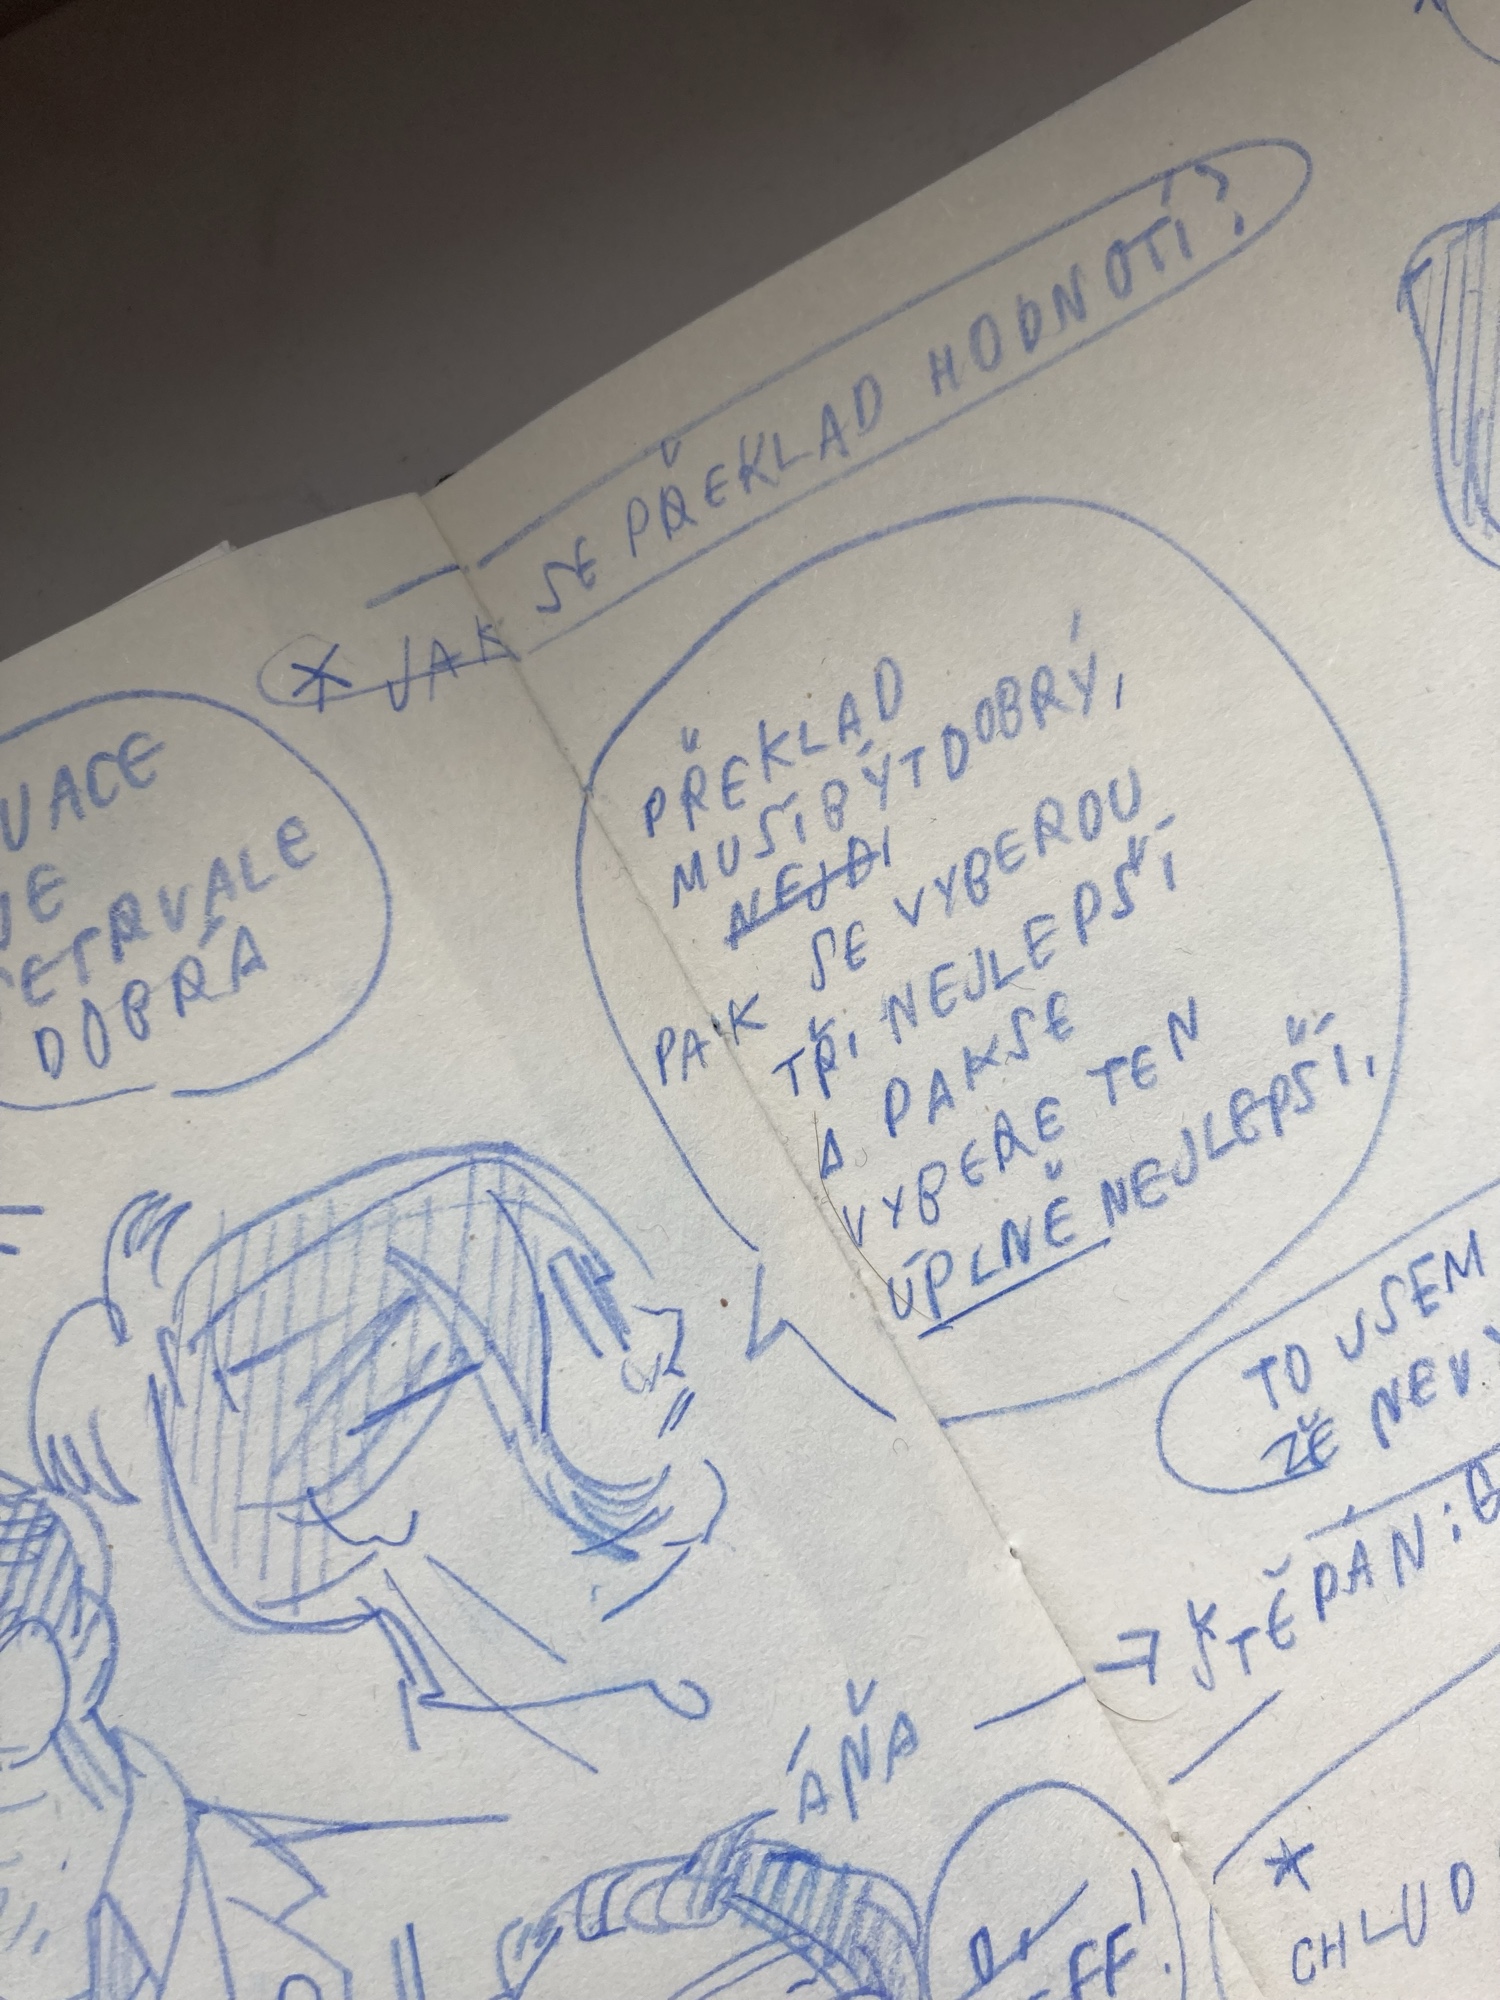 * JAK SE PŘEKLAD HODNOTÍ?
UACE
JE
SETRVALE
DOBRÁ
PŘEKLAD
MUSÍ BÝT DOBRÝ,
PAK SE VYBEROU
TŘI NEJLEPŠÍ
A PAK SE
VYBERE TEN
ÚPLNĚ NEJLEPŠÍ.
TO VŠEM
ŽE NEV
ÁŇA → ŠTĚPÁN:
*
CHLUD